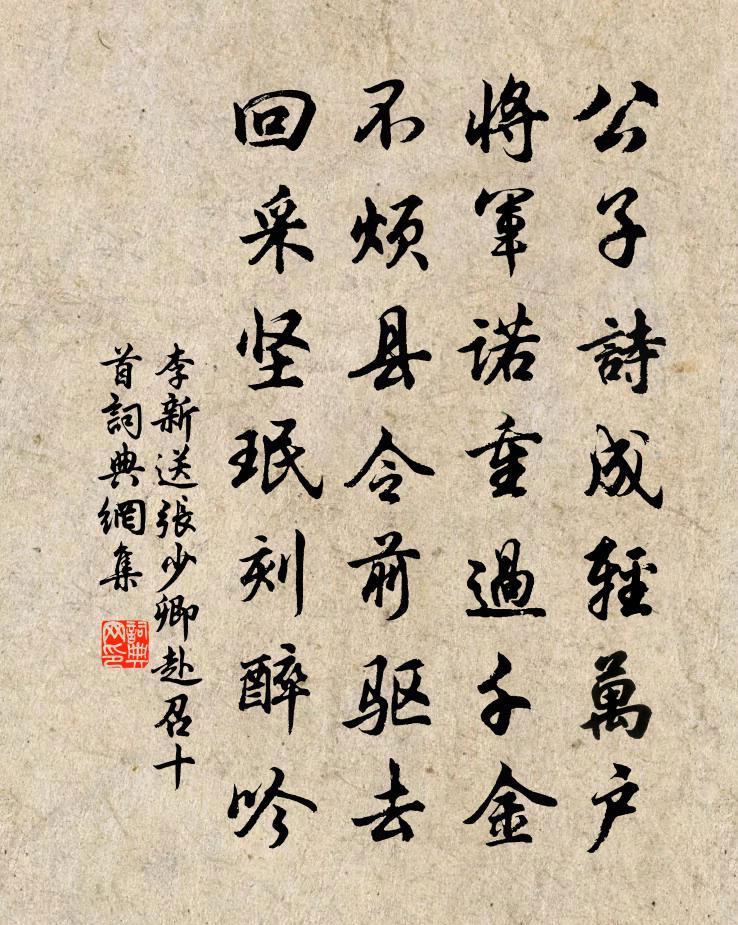 公子詩成輕萬户
將軍诺重過千金
不烦县令前驱去
回采坚珉刻醉吟
李新送張少卿赴召十
首詞典網集
詞典
网印